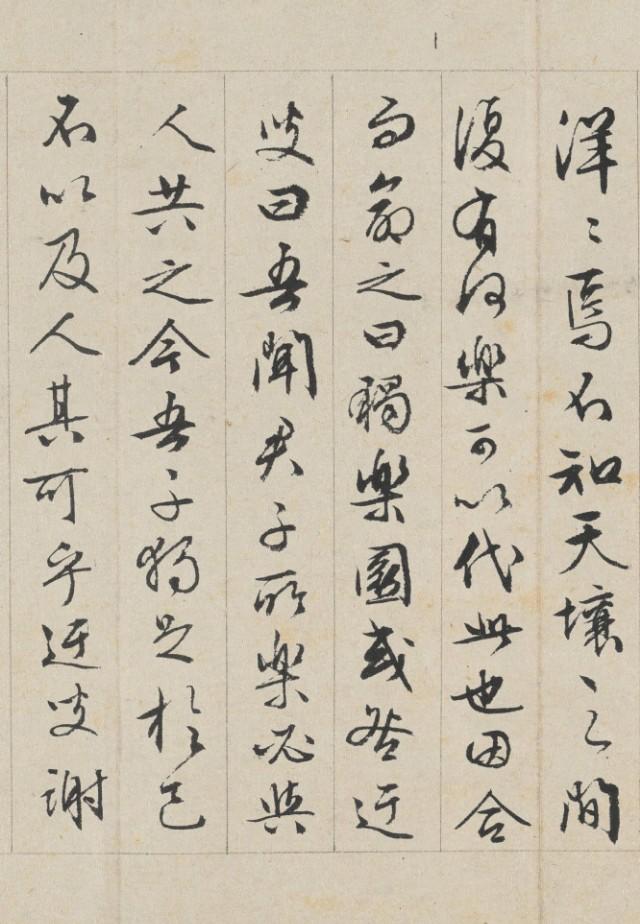 洋〻焉不知天壤之間
復有何樂可以代此也因合
而命之曰獨樂園或咎迂
叟曰吾聞君子所樂必與
人共之今吾子獨足於己
不以及人其可乎迂叟謝